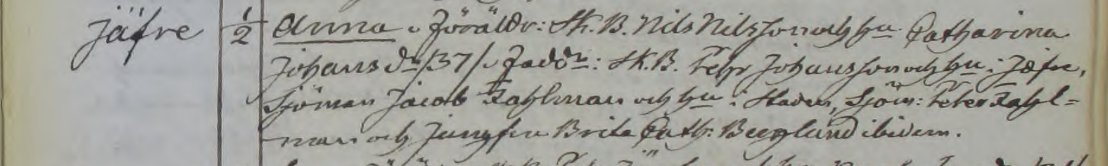 Jäfre 1/2 Anna. Föräldr: Sk.B. Nils Nilsson och hu Catharina
Johans dr /37/. Faddr: Sk.B. Pehr Johansson och hu i Jäfre,
Sjöman Jacob Kahlman och hu i Staden, Sjöm: Peter Kahl=
man och Jungfru Brita Cath: Berglund ibidem.